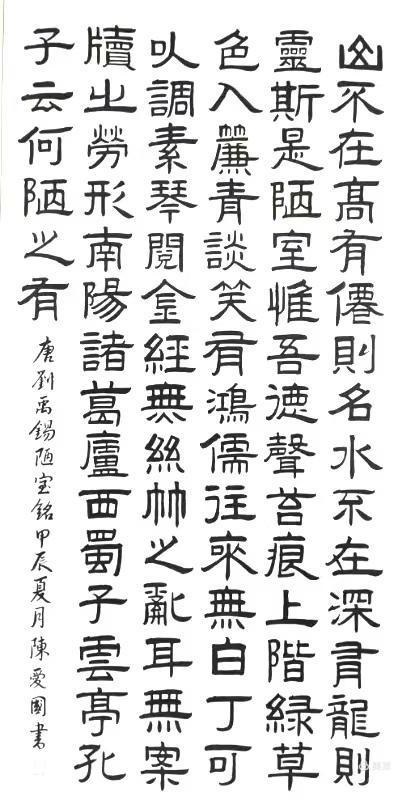 山不在髙有僊則名水不在深有龍則
靈斯是陋室惟吾德聲苔痕上階緑草
色入簾青談笑有鴻儒往來無白丁可
以調素琴閲金經無絲竹之亂耳無案
牘之勞形南陽諸葛廬西蜀子雲亭孔
子云何陋之有
唐劉禹錫陋室銘甲辰夏月陳愛國書